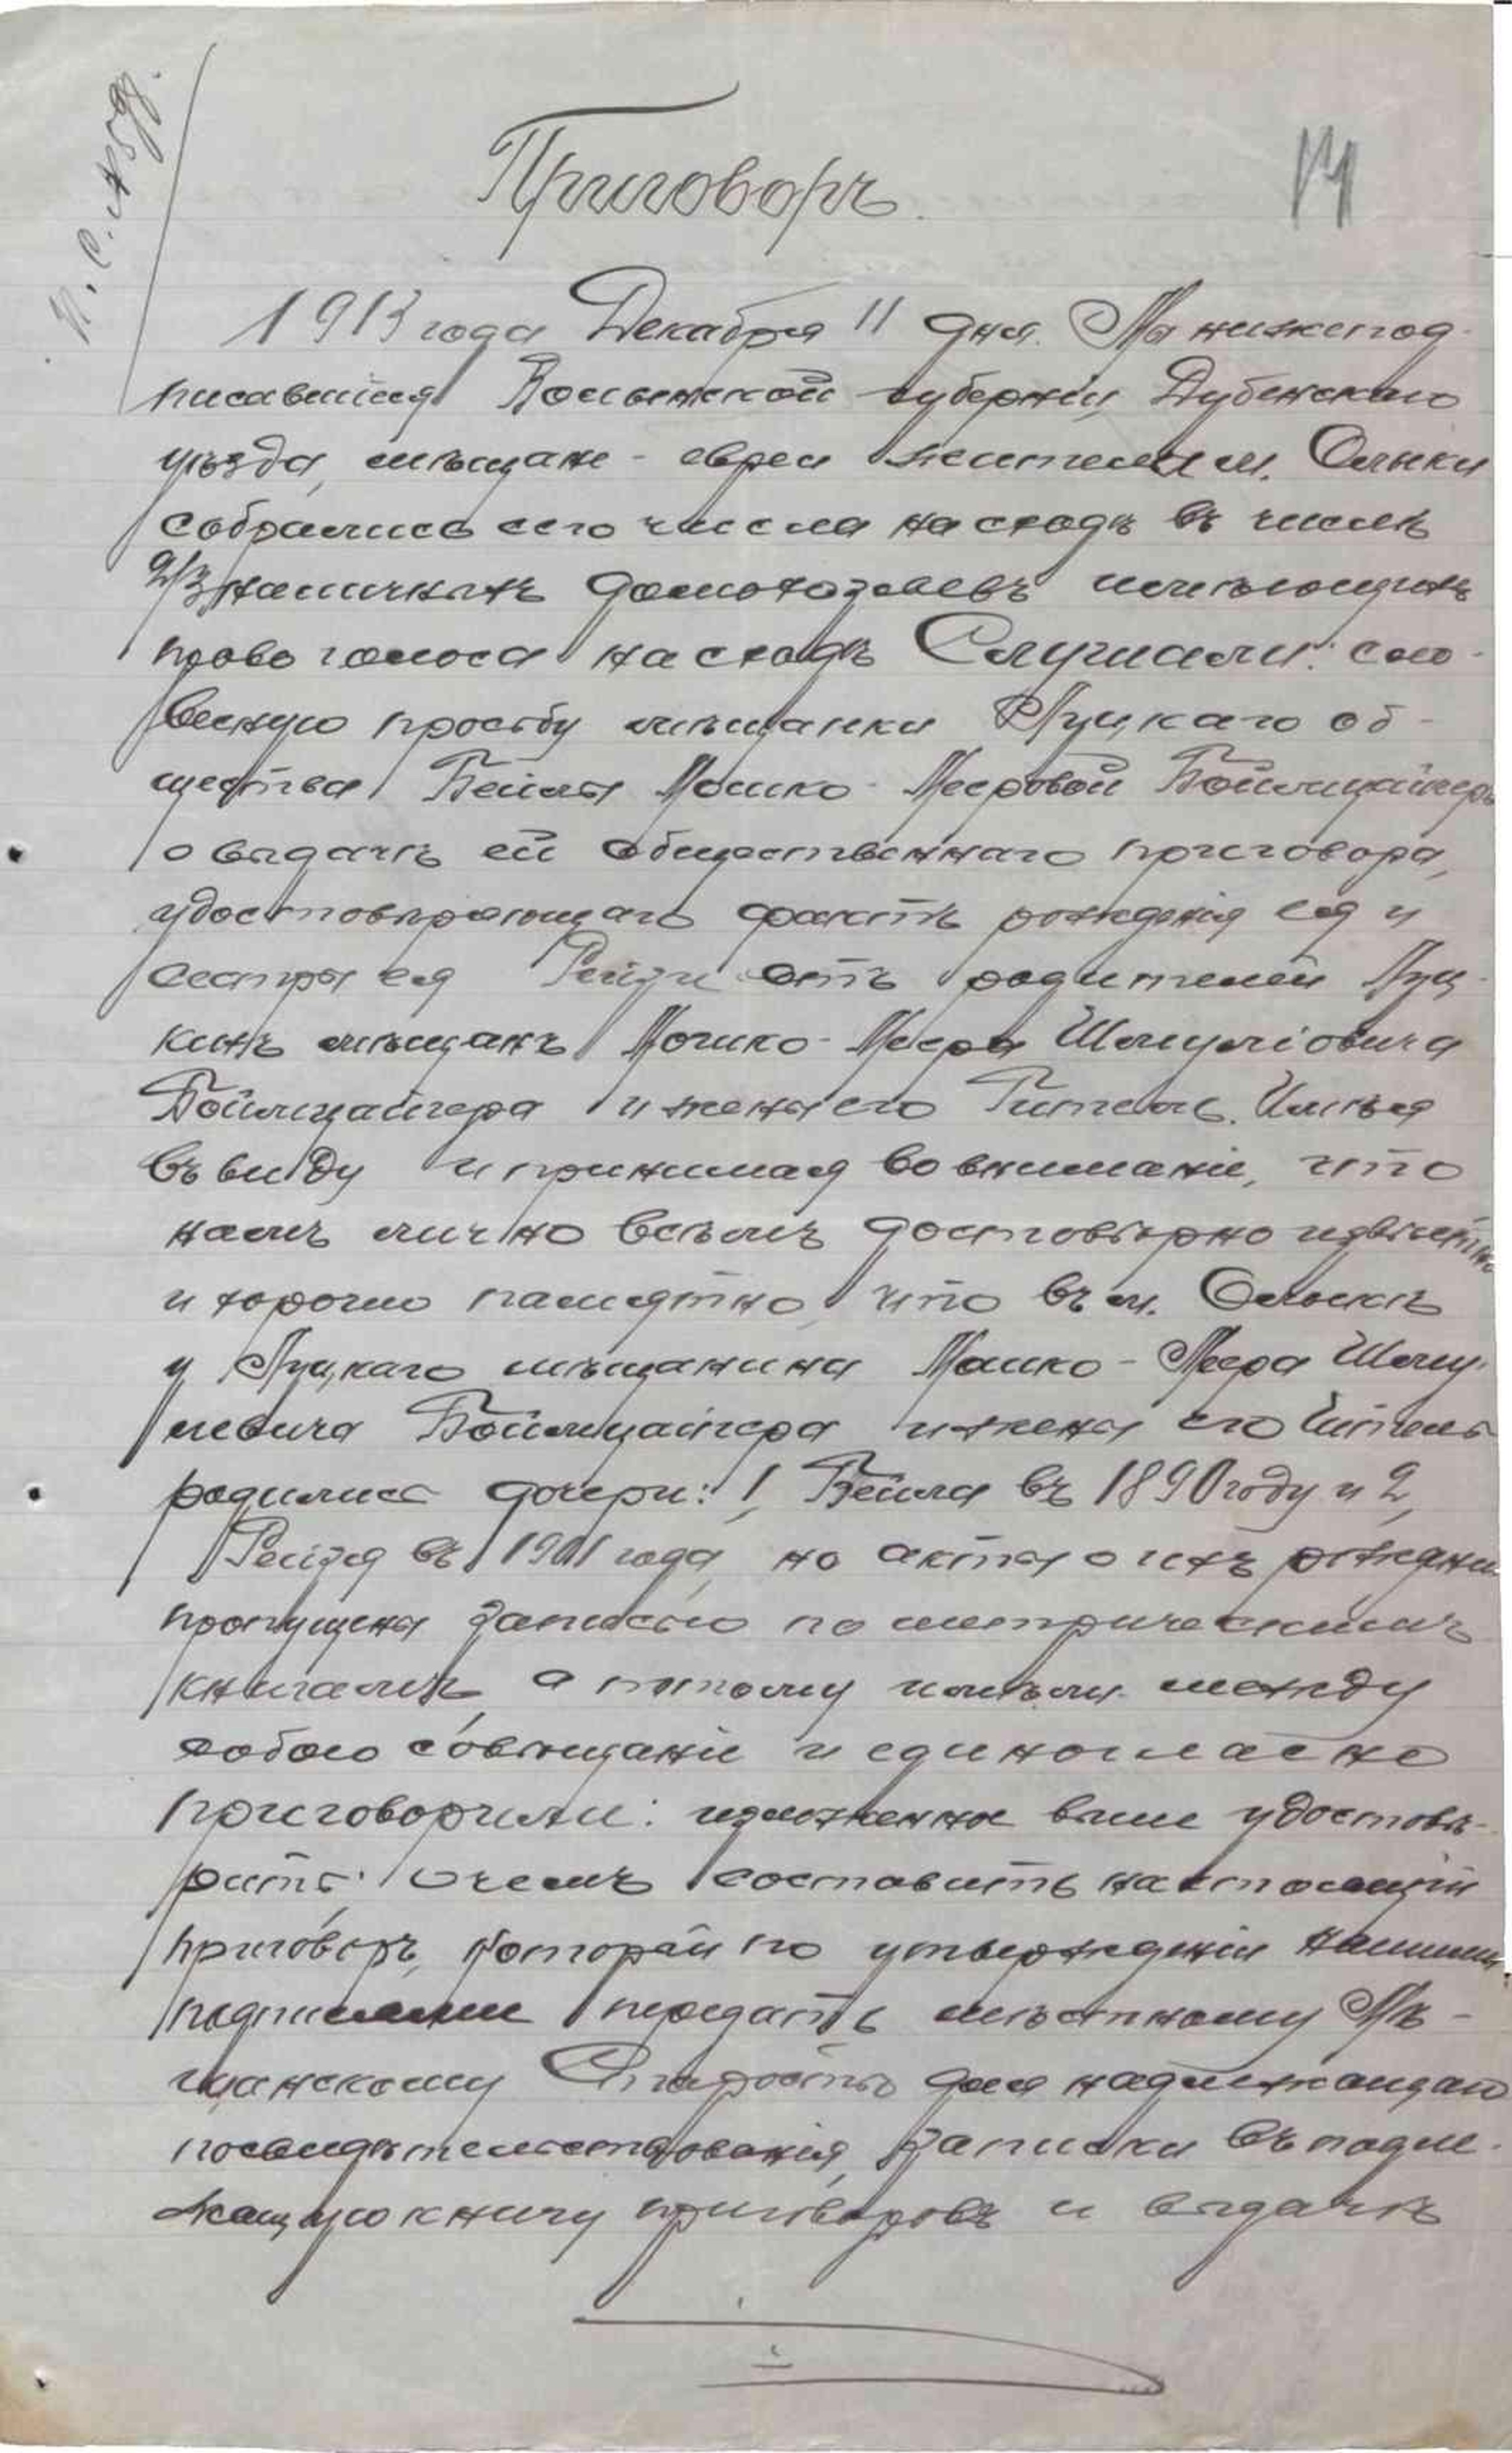 Приговоръ.
14
1913 года Декабря 11 дня. Мы нижепод-
писавшіеся Волынской губерніи, Дубенскаго
уѣзда, мѣщане - евреи жители м. Олыки
собрались сего числа на сходъ въ числѣ
2/3 наличныхъ домохозяевъ имѣющихъ
право голоса на сходѣ Слушали: сло-
весную просьбу мѣщанки Луцкаго об-
щества Бейлы Мошко-Мееровой Боймцайгеръ
о выдачѣ ей общественнаго приговора,
удостовѣряющаго фактъ рожденія ея и
сестры ея Рейзи отъ родителей Луц-
кихъ мѣщанъ Мошко-Меера Шмуліовича
Боймцайгера и жены его Гитель. Имѣя
въ виду и принимая во вниманіе, что
намъ лично всѣмъ достовѣрно извѣстно
и хорошо памятно, что въ м. Олыкѣ
у Луцкаго мѣщанина Мошко-Меера Шму-
левича Боймцайгера и жены его Гитель
родились дочери: 1, Бейла въ 1890 году и 2,
Рейзя въ 1901 года, но акты о ихъ рожденіи
пропущены записью по метрическимъ
книгамъ, а потому имѣли между
собою совѣщаніе и единогласно
приговорили: изложенное выше удостовѣ-
рить, о чемъ составить настоящій
приговоръ, который по утвержденіи нашими
подписями передать мѣстному Мѣ-
щанскому Старостѣ для надлежащаго
посвидѣтельствованія, записки въ подле-
жащую книгу приговоровъ и выдачѣ